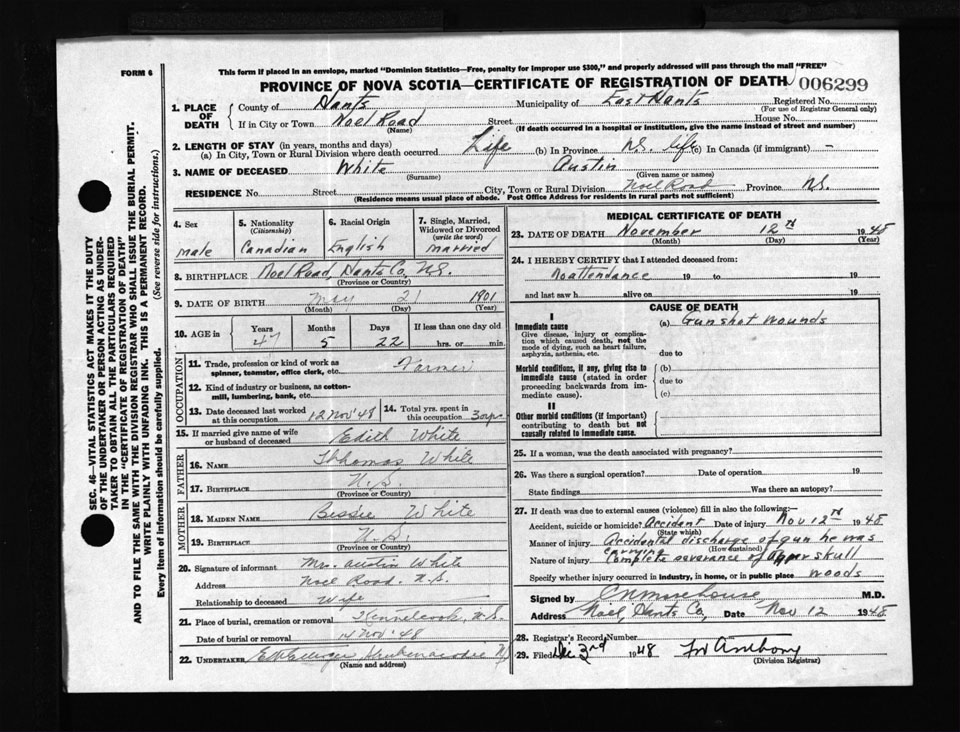 FORM 6
This form if placed in an envelope, marked "Dominion Statistics—Free, penalty for improper use $300," and properly addressed will pass through the mail "FREE"
PROVINCE OF NOVA SCOTIA—CERTIFICATE OF REGISTRATION OF DEATH 006299
1. PLACE OF DEATH County of Hants Municipality of East Hants Registered No.
(For use of Registrar General only)
If in City or Town Noel Road Street House No.
(Name) (If death occurred in a hospital or institution, give the name instead of street and number)
2. LENGTH OF STAY (in years, months and days)
(a) In City, Town or Rural Division where death occurred Life (b) In Province N.S. life (c) In Canada (if immigrant) —
3. NAME OF DECEASED White Austin
(Surname) (Given name or names)
RESIDENCE No. Street City, Town or Rural Division Noel Road Province N.S.
(Residence means usual place of abode. Post Office Address for residents in rural parts not sufficient)
SEC. 46—VITAL STATISTICS ACT MAKES IT THE DUTY
OF THE UNDERTAKER OR PERSON ACTING AS UNDER-
TAKER TO OBTAIN ALL THE PARTICULARS REQUIRED
IN THE "CERTIFICATE OF REGISTRATION OF DEATH"
AND TO FILE THE SAME WITH THE DIVISION REGISTRAR WHO SHALL ISSUE THE BURIAL PERMIT.
WRITE PLAINLY WITH UNFADING INK. THIS IS A PERMANENT RECORD.
Every item of information should be carefully supplied. (See reverse side for instructions.)
4. Sex 5. Nationality (Citizenship) 6. Racial Origin 7. Single, Married, Widowed or Divorced (write the word)
male Canadian English married
8. BIRTHPLACE Noel Road, Hants Co, N.S.
(Province or Country)
9. DATE OF BIRTH May 21 1901
(Month) (Day) (Year)
10. AGE in Years Months Days If less than one day old
47 5 22 hrs. or min.
OCCUPATION
11. Trade, profession or kind of work as spinner, teamster, office clerk, etc. Farmer
12. Kind of industry or business, as cotton-mill, lumbering, bank, etc.
13. Date deceased last worked at this occupation 12 Nov '48 14. Total yrs. spent in this occupation 30 yrs
15. If married give name of wife or husband of deceased Edith White
FATHER
16. NAME Thomas White
17. BIRTHPLACE N.S.
(Province or Country)
MOTHER
18. MAIDEN NAME Bessie White
19. BIRTHPLACE N.S.
(Province or Country)
20. Signature of informant Mrs. Austin White
Address Noel Road. N.S.
Relationship to deceased Wife
21. Place of burial, cremation or removal Kennetcook, N.S.
Date of burial or removal 14 Nov '48
22. UNDERTAKER Shubenacadie
(Name and address)
MEDICAL CERTIFICATE OF DEATH
23. DATE OF DEATH November 12th 1948
(Month) (Day) (Year)
24. I HEREBY CERTIFY that I attended deceased from:
No attendance 19 to 19
and last saw h alive on 19
CAUSE OF DEATH
I
Immediate cause (a) Gunshot wounds
Give disease, injury or complica-
tion which caused death, not the
mode of dying, such as heart failure,
asphyxia, asthenia, etc. due to
Morbid conditions, if any, giving rise to (b)
immediate cause (stated in order due to
proceeding backwards from im-
mediate cause). (c)
II
Other morbid conditions (if important)
contributing to death but not
causally related to immediate cause.
25. If a woman, was the death associated with pregnancy?
26. Was there a surgical operation? Date of operation 19
State findings Was there an autopsy?
27. If death was due to external causes (violence) fill in also the following:—
Accident, suicide or homicide? Accident Date of injury Nov 12th 1948
(State which)
Manner of injury Accidental discharge of gun he was carrying
(How sustained)
Nature of injury Complete severance of upper skull
Specify whether injury occurred in industry, in home, or in public place woods
Signed by C N Morehouse M.D.
Address Noel, Hants Co, Date Nov 12 1948
28. Registrar's Record Number
29. Filed Dec 3rd 1948 Anthony
(Division Registrar)